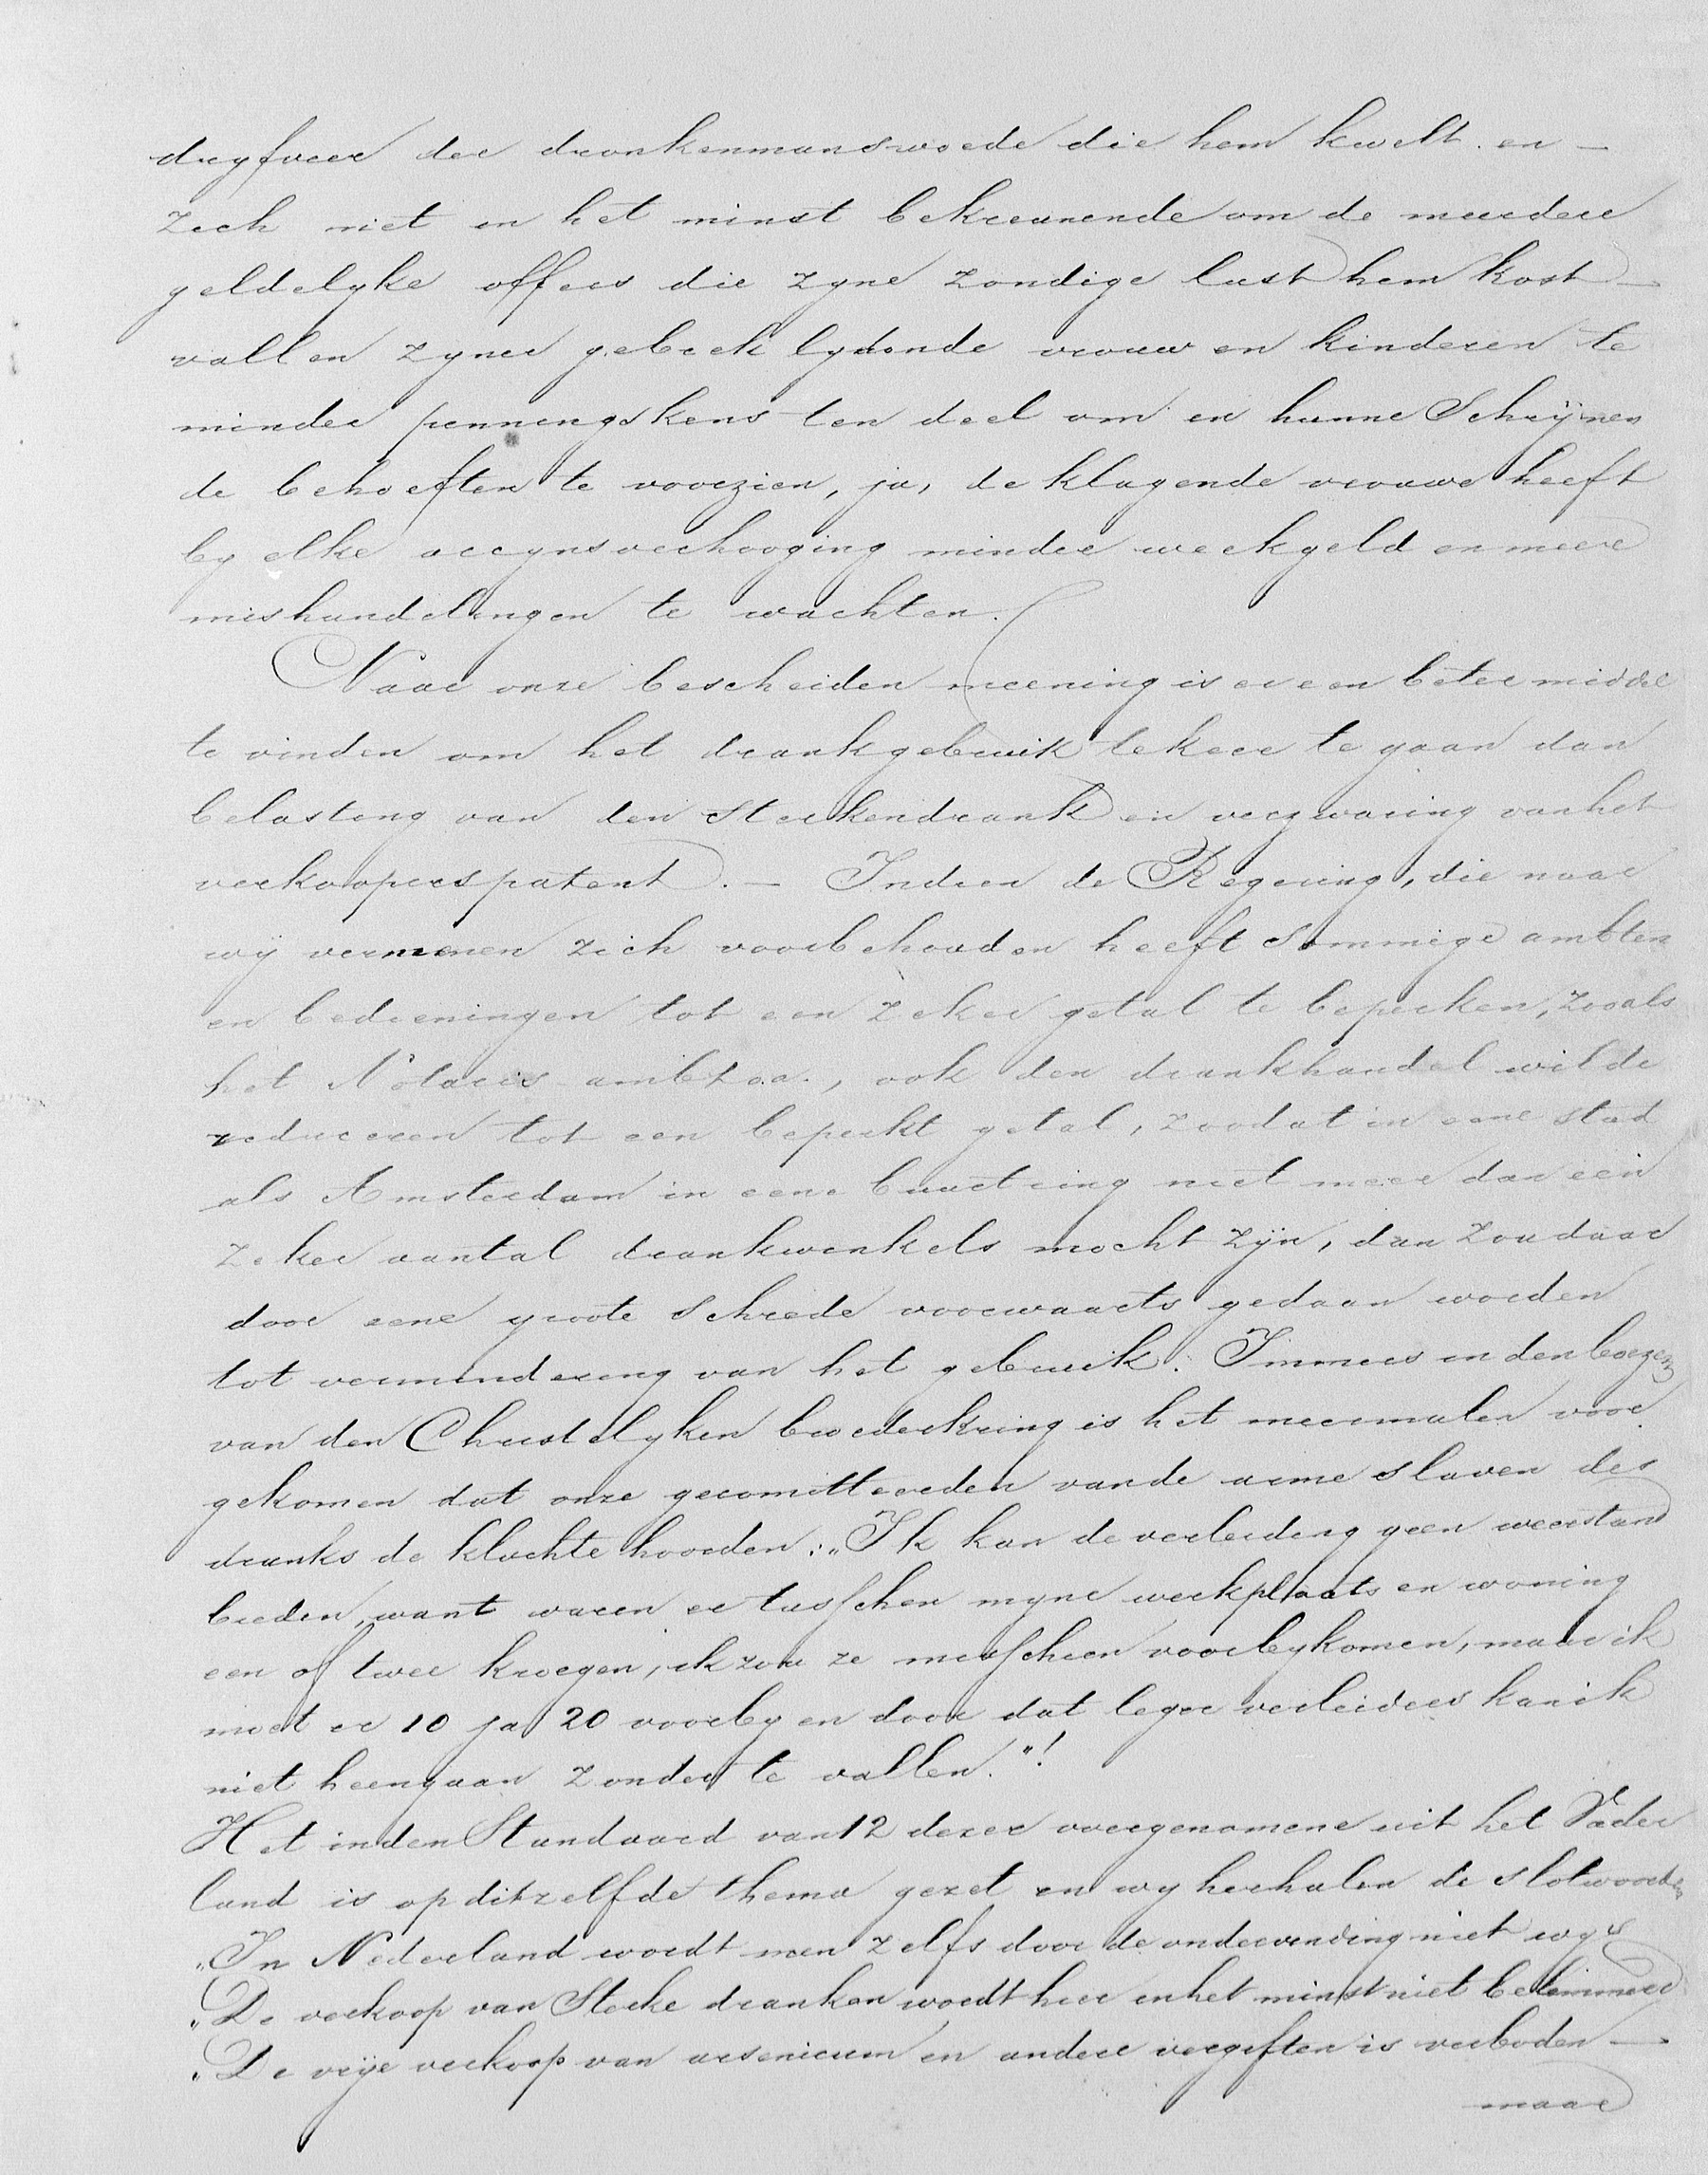 dryfveer der dronkenmanswoede die hem kwelt en —
zich niet in het minst bekreunende om de meerdere
geldelyke offers die zyne zondige lust hem kost —
vallen zyner gebrek lydende vrouw en kinderen te
minder penningskens ten deel om in hunne schrijnen
de behoeften te voorzien, ja, de klagende vrouwe heeft
by elke accynsverhooging minder weekgeld en meere
mishandelingen te wachten.
Naar onze bescheiden meening is er een beter middel
te vinden om het drankgebruik te keer te gaan dan
belasting van den Sterkendrank en verzwaring van het
verkooperspatent. — Indien de Regering, die naar
wij vermenen zich voorbehouden heeft sommige ambten
en bedieningen tot een zeker getal te beperken, zooals
het Notaris ambt o.a., ook den drankhandel wilde
reduceren tot een beperkt getal, zoodat in eene stad
als Amsterdam in eene buurtring niet meer dan een
zeker aantal drankwinkels mocht zijn, dan zou daar
door eene groote schrede voorwaarts gedaan worden
tot vermindering van het gebruik. Immers in den boezem
van den Christelyken broederkring is het meermalen voor
gekomen dat onze gecomitteerden van de arme slaven des
dranks de klachte hoorden: „Ik kan de verleiding geen weerstand
bieden, want waren er tusschen myne werkplaats en woning
een of twee kroegen, ik zou ze misschien voorbykomen, maar ik
moet er 10 ja 20 voorby en door dat leger verleiders kan ik
niet heengaan zonder te vallen."!
Het in den Standaard van 12 dezer overgenomene uit het Vader
land is op ditzelfde thema gezet en wy herhalen de slotwoorden
„In Nederland wordt men zelfs door de ondervinding niet wys
„De verkoop van Sterke dranken wordt hier in het minst niet belemmerd
„De vrije verkoop van arsenicum en andere vergiften is verboden —
maar